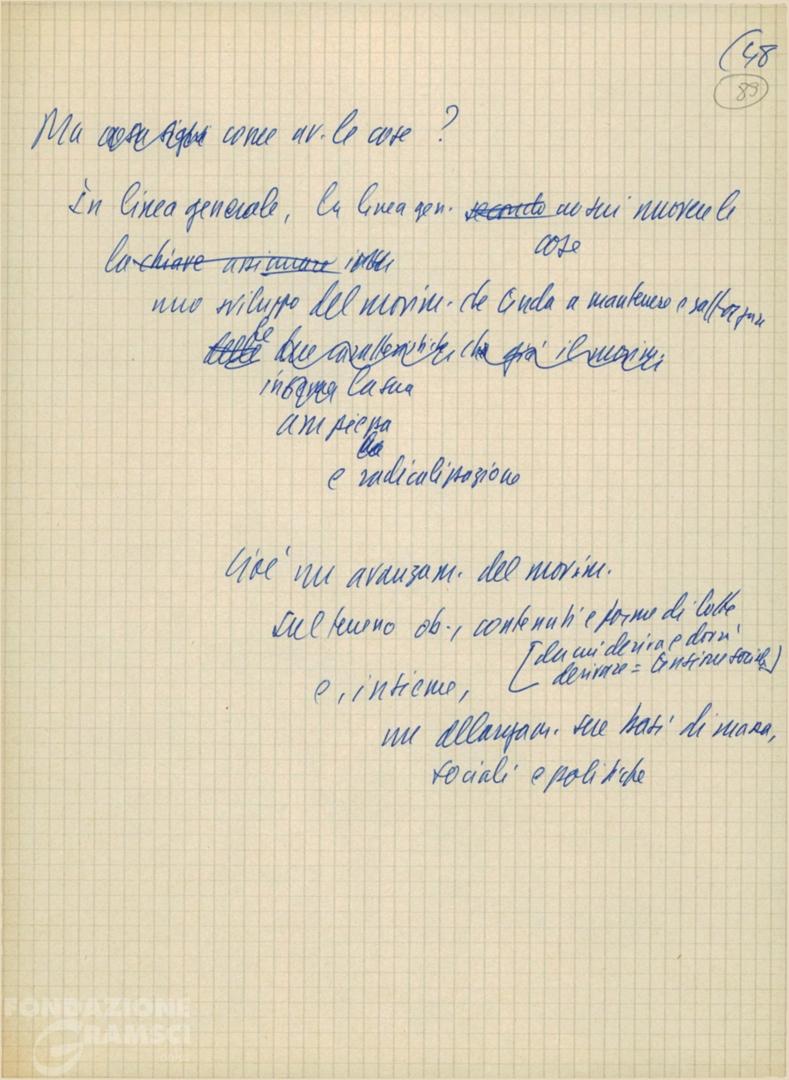 (48
89
Ma come av. le cose ?
In linea generale, la linea gen. secondo cui muovere le
cose
la chiave
uno sviluppo del movim. che tenda a mantenere e
delle le due caratteristiche che già il movim.
insieme la sua
ampiezza
la
e radicalizzazione
Cioè un avanzam. del movim.
sul terreno ob., contenuti e forme di lotte
[da cui deriva e dovrà
derivare =
e, insieme,
un allargam. sue basi di massa,
sociali e politiche
FONDAZIONE
GRAMSCI